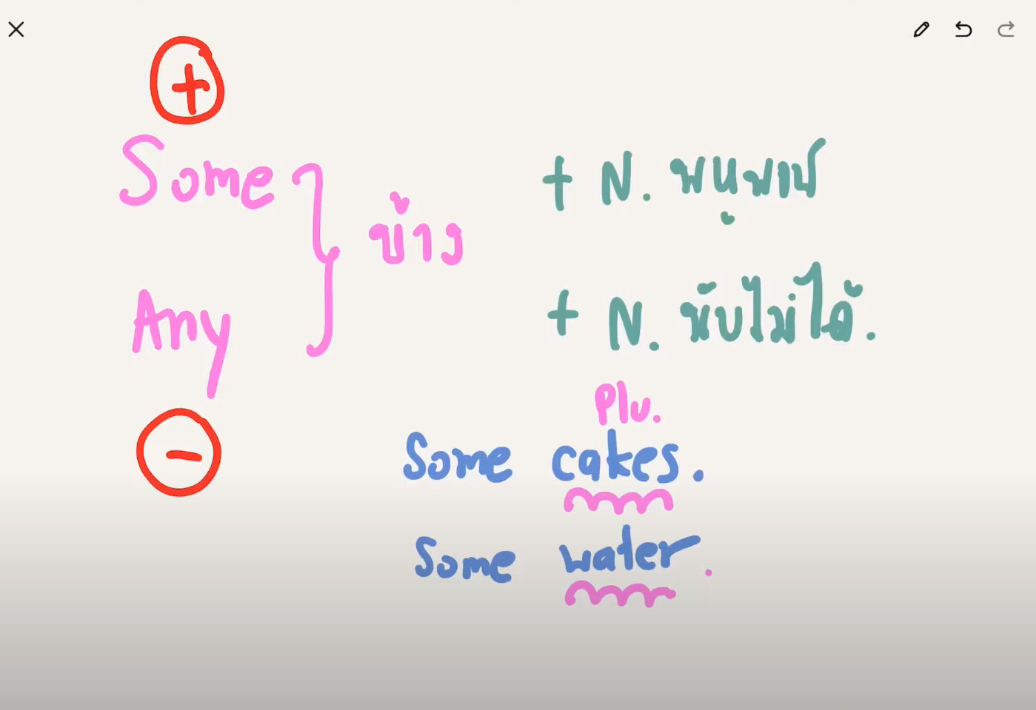 +
Some } บ้าง + N. พหูพจน์
Any + N. นับไม่ได้.
-
Plu.
Some cakes.
Some water.